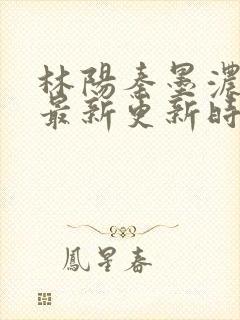 林陽秦墨濃
最新更新時
鳳星春